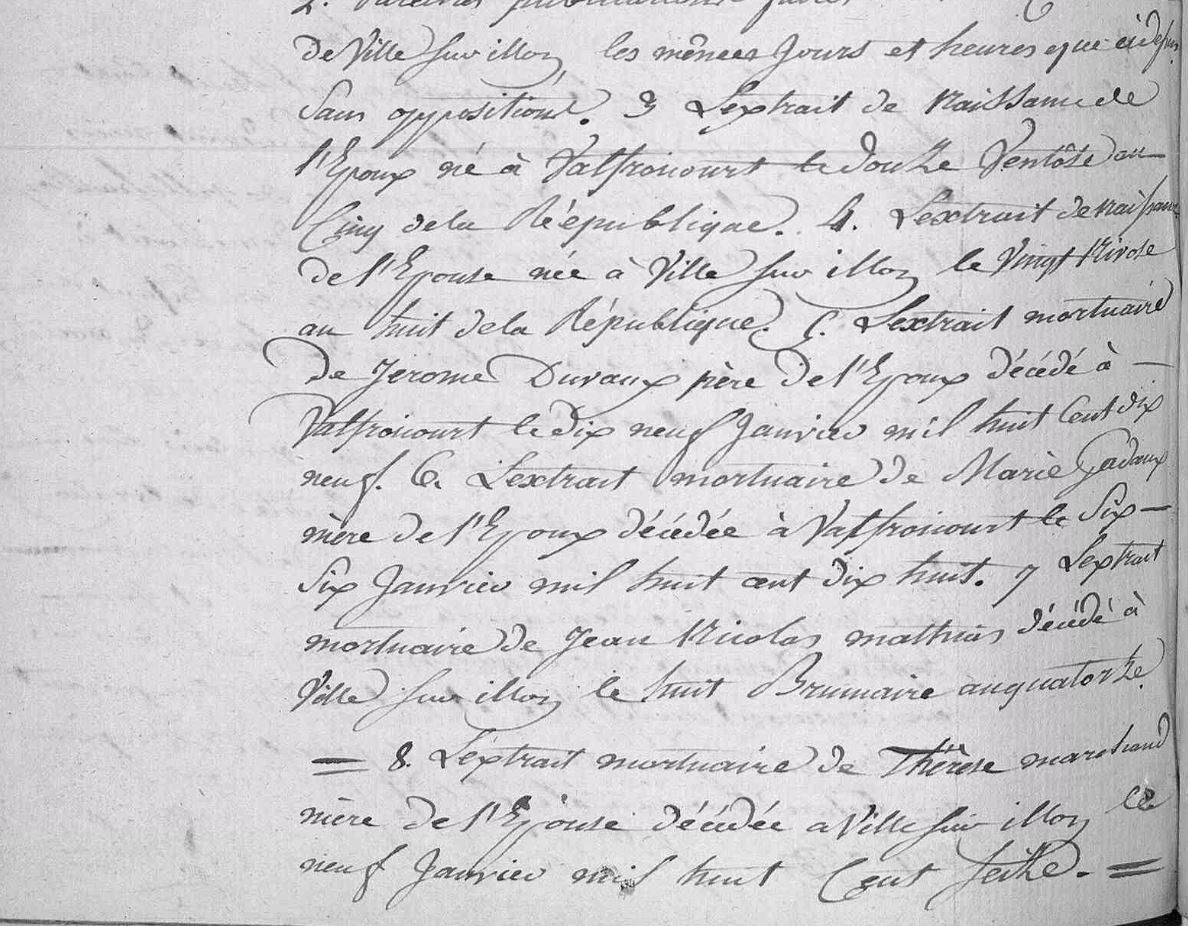 2. Pareilles publications faites
de Ville Sur illon les mêmes Jours et heures que cidessus
Sans oppositions. 3 L'extrait de Naissance de
l'Epoux né à Valfroicourt le douze Ventôse an
Cinq dela République. 4. L'extrait de naissance
de l'Epouse née à Ville sur illon le Vingt Nivose
an huit dela République. 5. L'extrait mortuaire
De Jerome Duvaux père de l'Epoux décédé à —
Valfroicourt le dix neuf Janvier mil huit Cent dix
neuf. 6. L'extrait mortuaire de Marie Gadaux
mère de l'Epoux décédée à Valfroicourt le Six —
Six Janvier mil huit cent dix huit. 7 L'extrait
mortuaire de Jean Nicolas mathias décédé à
Ville sur illon le huit Brumaire an quatorze.
= 8. L'extrait mortuaire de Thérese marchand
mère de l'Epouse décédée a Ville sur illon le
neuf Janvier mil huit Cent seize. =